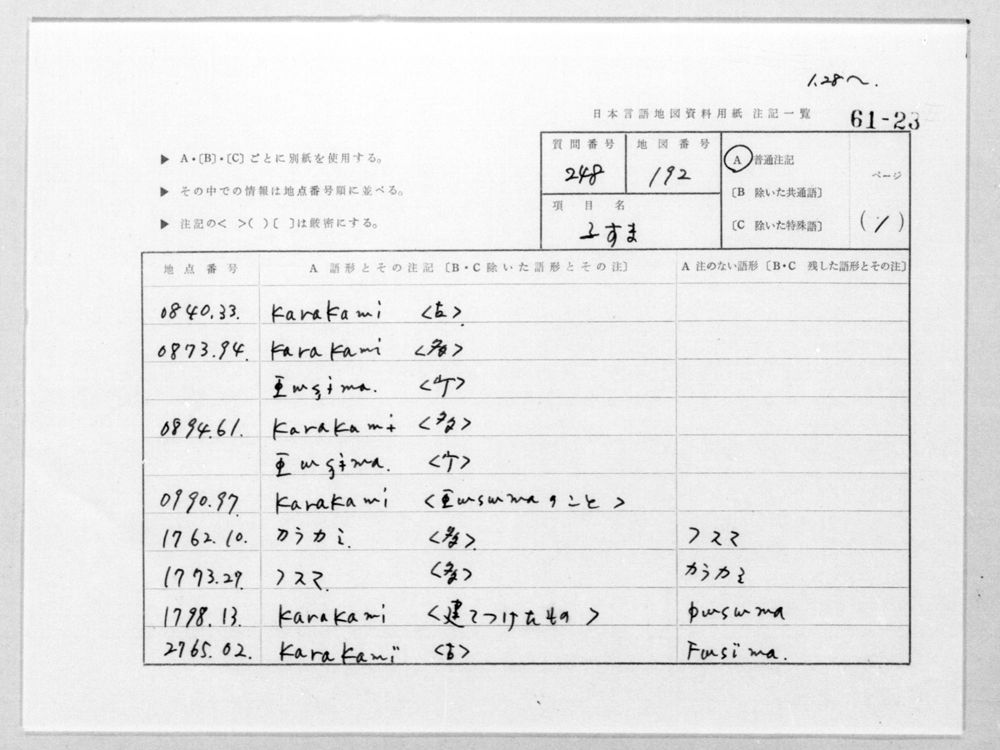 1.28~.
日本言語地図資料用紙 注記一覧 61-23
▶ A・〔B〕・〔C〕ごとに別紙を使用する。
▶ その中での情報は地点番号順に並べる。
▶ 注記の< >( )〔 〕は厳密にする。
質問番号 248
地図番号 192
項目名
ふすま
A 普通注記
〔B 除いた共通語〕
〔C 除いた特殊語〕
ページ
(1)
地点番号 A 語形とその注記〔B・C除いた語形とその注〕 A 注のない語形〔B・C 残した語形とその注〕
0840.33. karakami <古>
0873.94. karakami <多>
<少>
0894.61. karakami <多>
<少>
0990.97 karakami のこと>
1762.10. カラカミ <多> フスマ
1773.27. フスマ <多> カラカミ
1798.13. karakami <建てつけたもの> ɸɯsɯma
2765.02. karakamï <古> Fɯsïma.